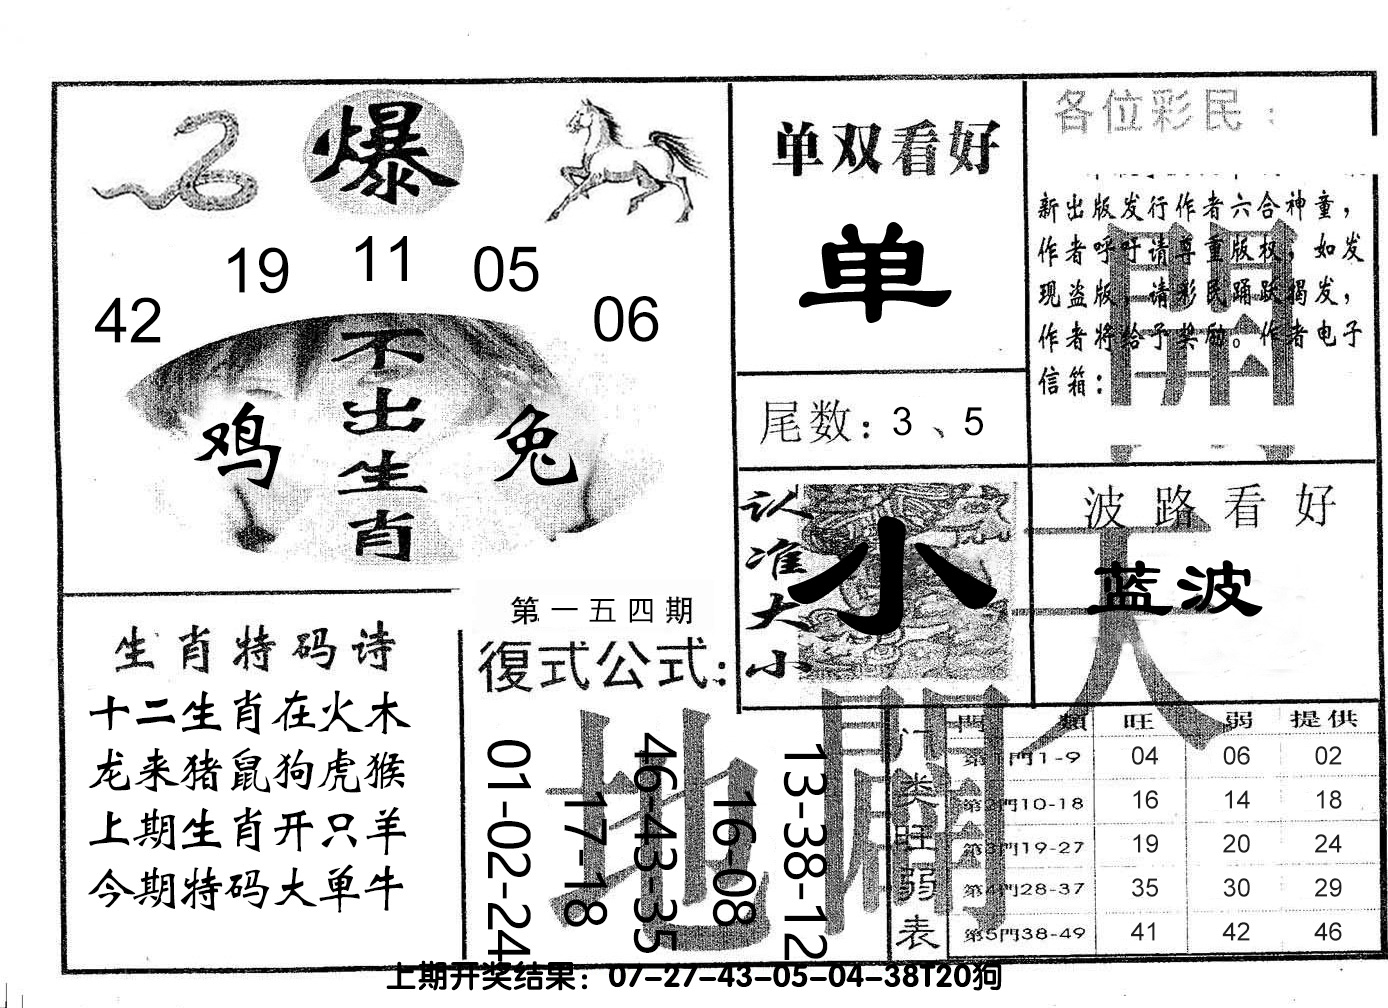 爆
19 11 05
42 06
不出生肖
鸡 兔
单双看好
单
尾数：3、5
各位彩民：
新出版发行作者六合神童，
作者呼吁请尊重版权，如发
现盗版，请彩民踊跃揭发，
作者将给予奖励。作者电子
信箱：
開
认准大小
小
波路看好
蓝波
天
生肖特码诗
十二生肖在火木
龙来猪鼠狗虎猴
上期生肖开只羊
今期特码大单牛
第一五四期
復式公式：
01-02-24
17-18
46-43-35
16-08
13-38-12
地
開
门类旺弱表
門類 旺 弱 提供
第1門1-9 04 06 02
第2門10-18 16 14 18
第3門19-27 19 20 24
第4門28-37 35 30 29
第5門38-49 41 42 46
上期开奖结果：07-27-43-05-04-38T20狗